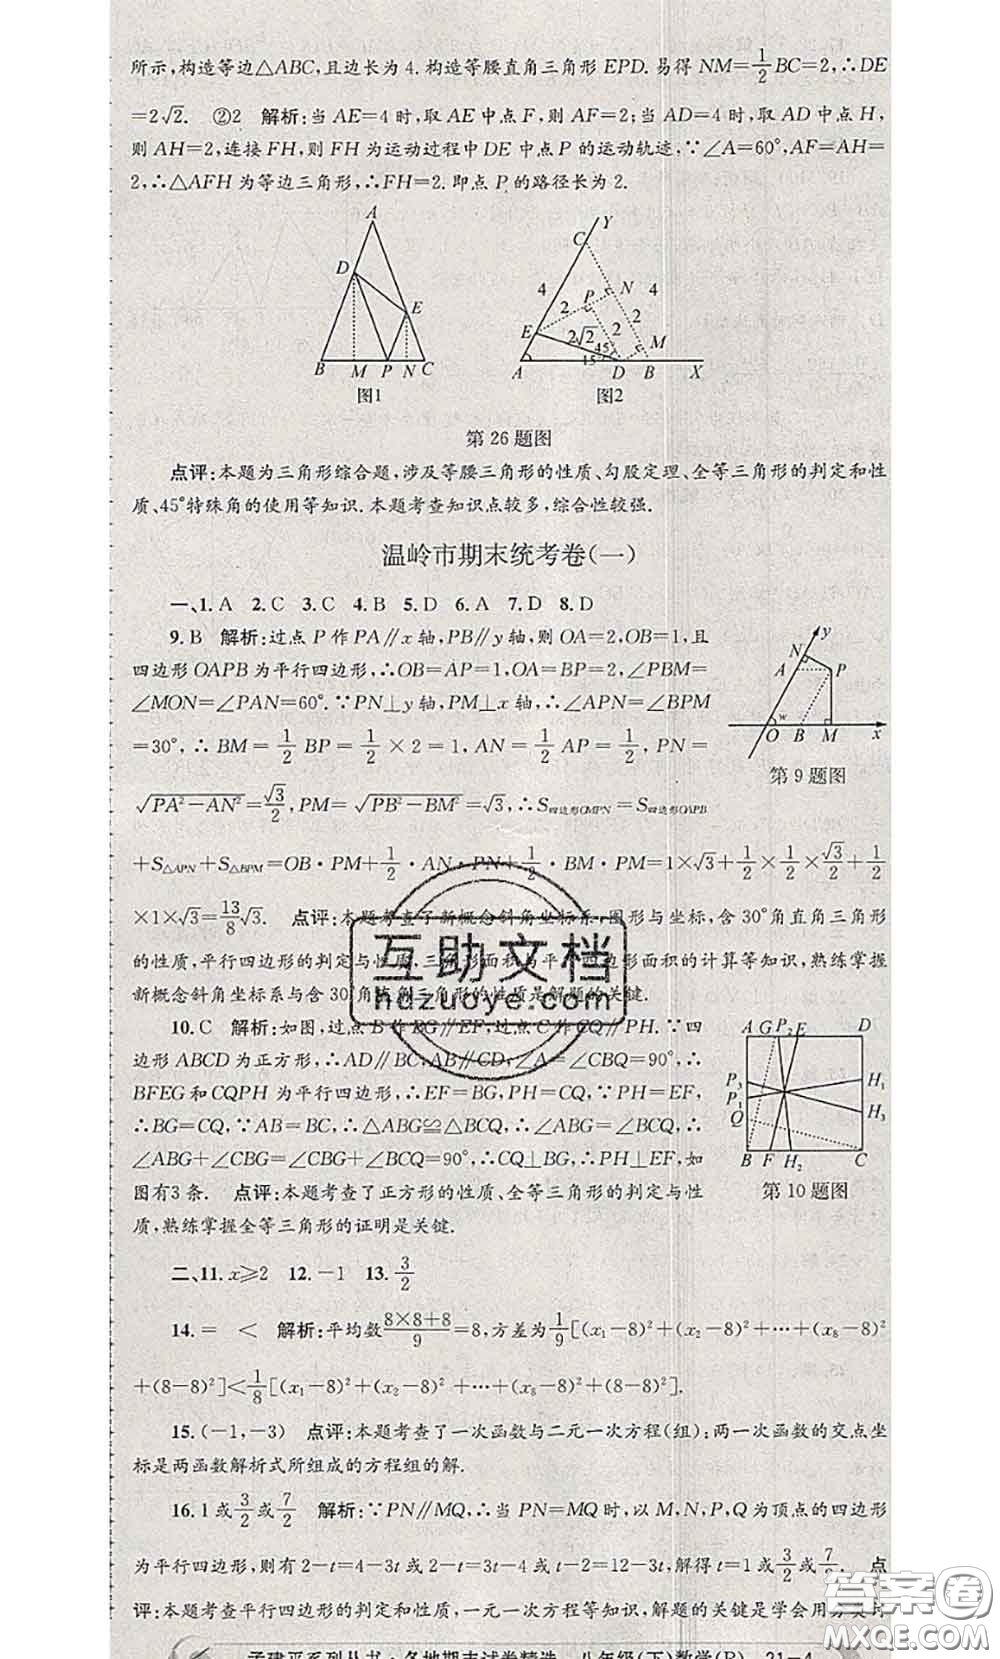 所示,构造等边△ABC,且边长为4.构造等腰直角三角形EPD.易得NM=1/2BC=2,∴DE
=2√2. ②2 解析:当AE=4时,取AE中点F,则AF=2;当AD=4时,取AD中点H,
则AH=2,连接FH,则FH为运动过程中DE中点P的运动轨迹,∵∠A=60°,AF=AH=
2,∴△AFH为等边三角形,∴FH=2.即点P的路径长为2.
A
D
E
B M P N C
图1
Y
C
4
P
N
4
2
2
E
2√2
2
45°
M
15°
A D B X
图2
第26题图
点评:本题为三角形综合题,涉及等腰三角形的性质、勾股定理、全等三角形的判定和性
质、45°特殊角的使用等知识.本题考查知识点较多,综合性较强.
温岭市期末统考卷(一)
一、1.A 2.C 3.C 4.B 5.D 6.A 7.D 8.D
9.B 解析:过点P作PA∥x轴,PB∥y轴,则OA=2,OB=1,且
四边形OAPB为平行四边形,∴OB=AP=1,OA=BP=2,∠PBM=
∠MON=∠PAN=60°.∵PN⊥y轴,PM⊥x轴,∴∠APN=∠BPM
=30°,∴BM=1/2BP=1/2×2=1,AN=1/2AP=1/2,PN=
√(PA²-AN²)=√3/2,PM=√(PB²-BM²)=√3,∴S四边形OMPN=S四边形OAPB
+S△APN+S△BPM=OB·PM+1/2·AN·PN+1/2·BM·PM=1×√3+1/2×1/2×√3/2+1/2
×1×√3=13/8√3. 点评:本题考查了新概念斜角坐标系、图形与坐标,含30°角直角三角形
的性质,平行四边形的判定与性质,三角形面积与平行四边形面积的计算等知识,熟练掌握
新概念斜角坐标系与含30°角直角三角形的性质是解题的关键.
y
N
A
P
w
O B M x
第9题图
10.C 解析:如图,过点B作BG∥EF,过点C作CQ∥PH.∵四
边形ABCD为正方形,∴AD∥BC,AB∥CD,∠A=∠CBQ=90°,∴
BFEG和CQPH为平行四边形,∴EF=BG,PH=CQ.∵PH=EF,
∴BG=CQ,∵AB=BC,∴△ABG≌△BCQ,∴∠ABG=∠BCQ,∴
∠ABG+∠CBG=∠CBG+∠BCQ=90°,∴CQ⊥BG,∴PH⊥EF,如
图有3条. 点评:本题考查了正方形的性质、全等三角形的判定与性
质,熟练掌握全等三角形的证明是关键.
A G P₂ E D
P₃
H₁
P₁
H₃
Q
B F H₂ C
第10题图
二、11.x⩾2 12.-1 13.3/2
14.= < 解析:平均数(8×8+8)/9=8,方差为1/9[(x₁-8)²+(x₂-8)²+…+(x₈-8)²
+(8-8)²]<1/8[(x₁-8)²+(x₂-8)²+…+(x₈-8)²].
15.(-1,-3) 点评:本题考查了一次函数与二元一次方程(组);两一次函数的交点坐
标是两函数解析式所组成的方程组的解.
16.1或3/2或7/2 解析:∵PN∥MQ,∴当PN=MQ时,以M,N,P,Q为顶点的四边形
为平行四边形,则有2-t=4-3t或2-t=3t-4或t-2=12-3t,解得t=1或3/2或7/2. 点
评:本题考查平行四边形的判定和性质,一元一次方程等知识,解题的关键是学会用
孟建平系列丛书·各地期末试卷精选 八年级(下)数学(R) 21-4
互助文档
hdzuoye.com
答案卷
MXQE.COM